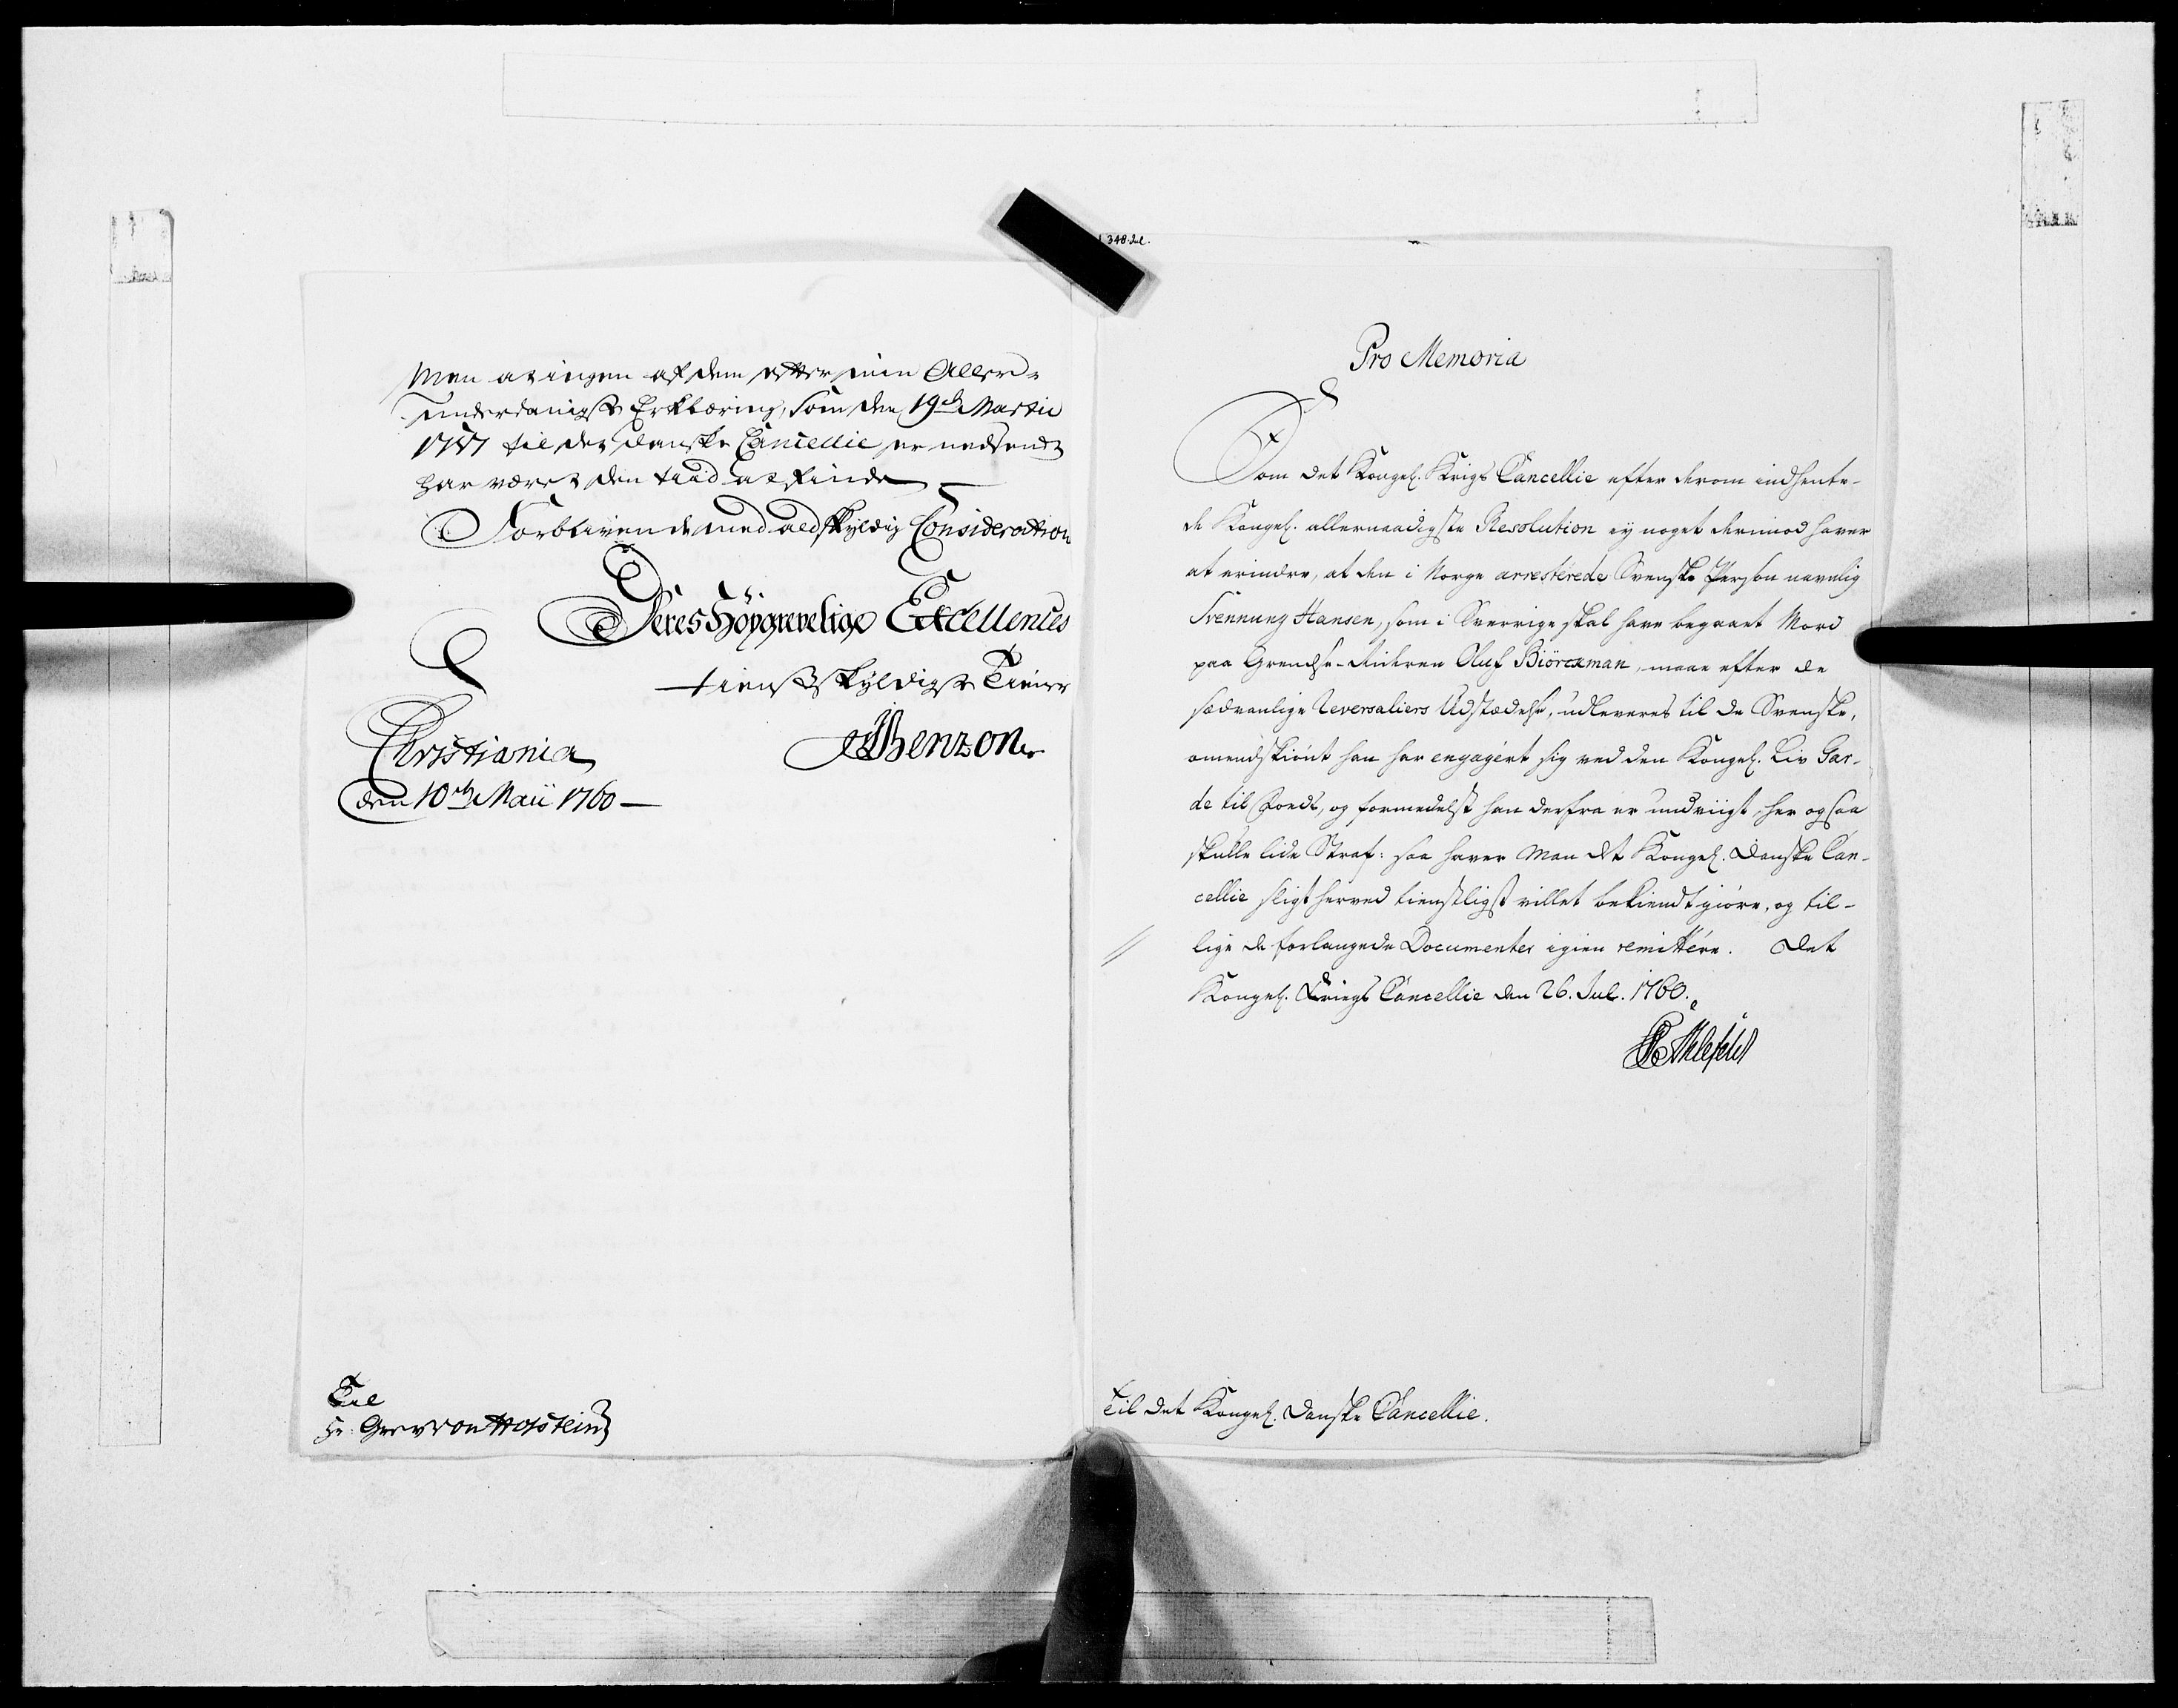 Men at ingen af dem efter min Aller-
underdanigste Erklæring, som den 19de Martii
1757 til det danske Cancellie er nedsendt
har været den tiid at finde
Forblivende med all skyldig Consideration
Deres Høygrevelige Excellences
tienstskyldigste Tiener
Benzon
Christiania
den 10de Maii 1760
Til
Hr. Grev von Holstein
348 
Pro Memoria
Som det Kongel. Krigs Cancellie efter derom indhente-
de Kongel. allernaadigste Resolution ey noget derimod haver
at erindre, at den i Norge arresterede Svenske Person navnlig
Svennung Hansen, som i Sverrige skal have begaaet Mord
paa Grendse-Rideren Oluf Biörckman, maae efter de
sædvanlige Reversaliers Udstædelse, udleveres til de Svenske,
omendskiönt han har engagert sig ved den Kongel. Liv Gar-
de til Foeds, og formedelst han derfra er undviigt her ogsaa
skulle lide Straf: saa haver Man det Kongel. Danske Can-
cellie sligt herved tienstligst villet bekiendtgiöre, og til-
lige de forlangede Documenter igien remittére. Det
Kongel. Kriegs Cancellie den 26. Jul. 1760.
Ahlefeldt
Til Det Kongel. Danske Cancellie.